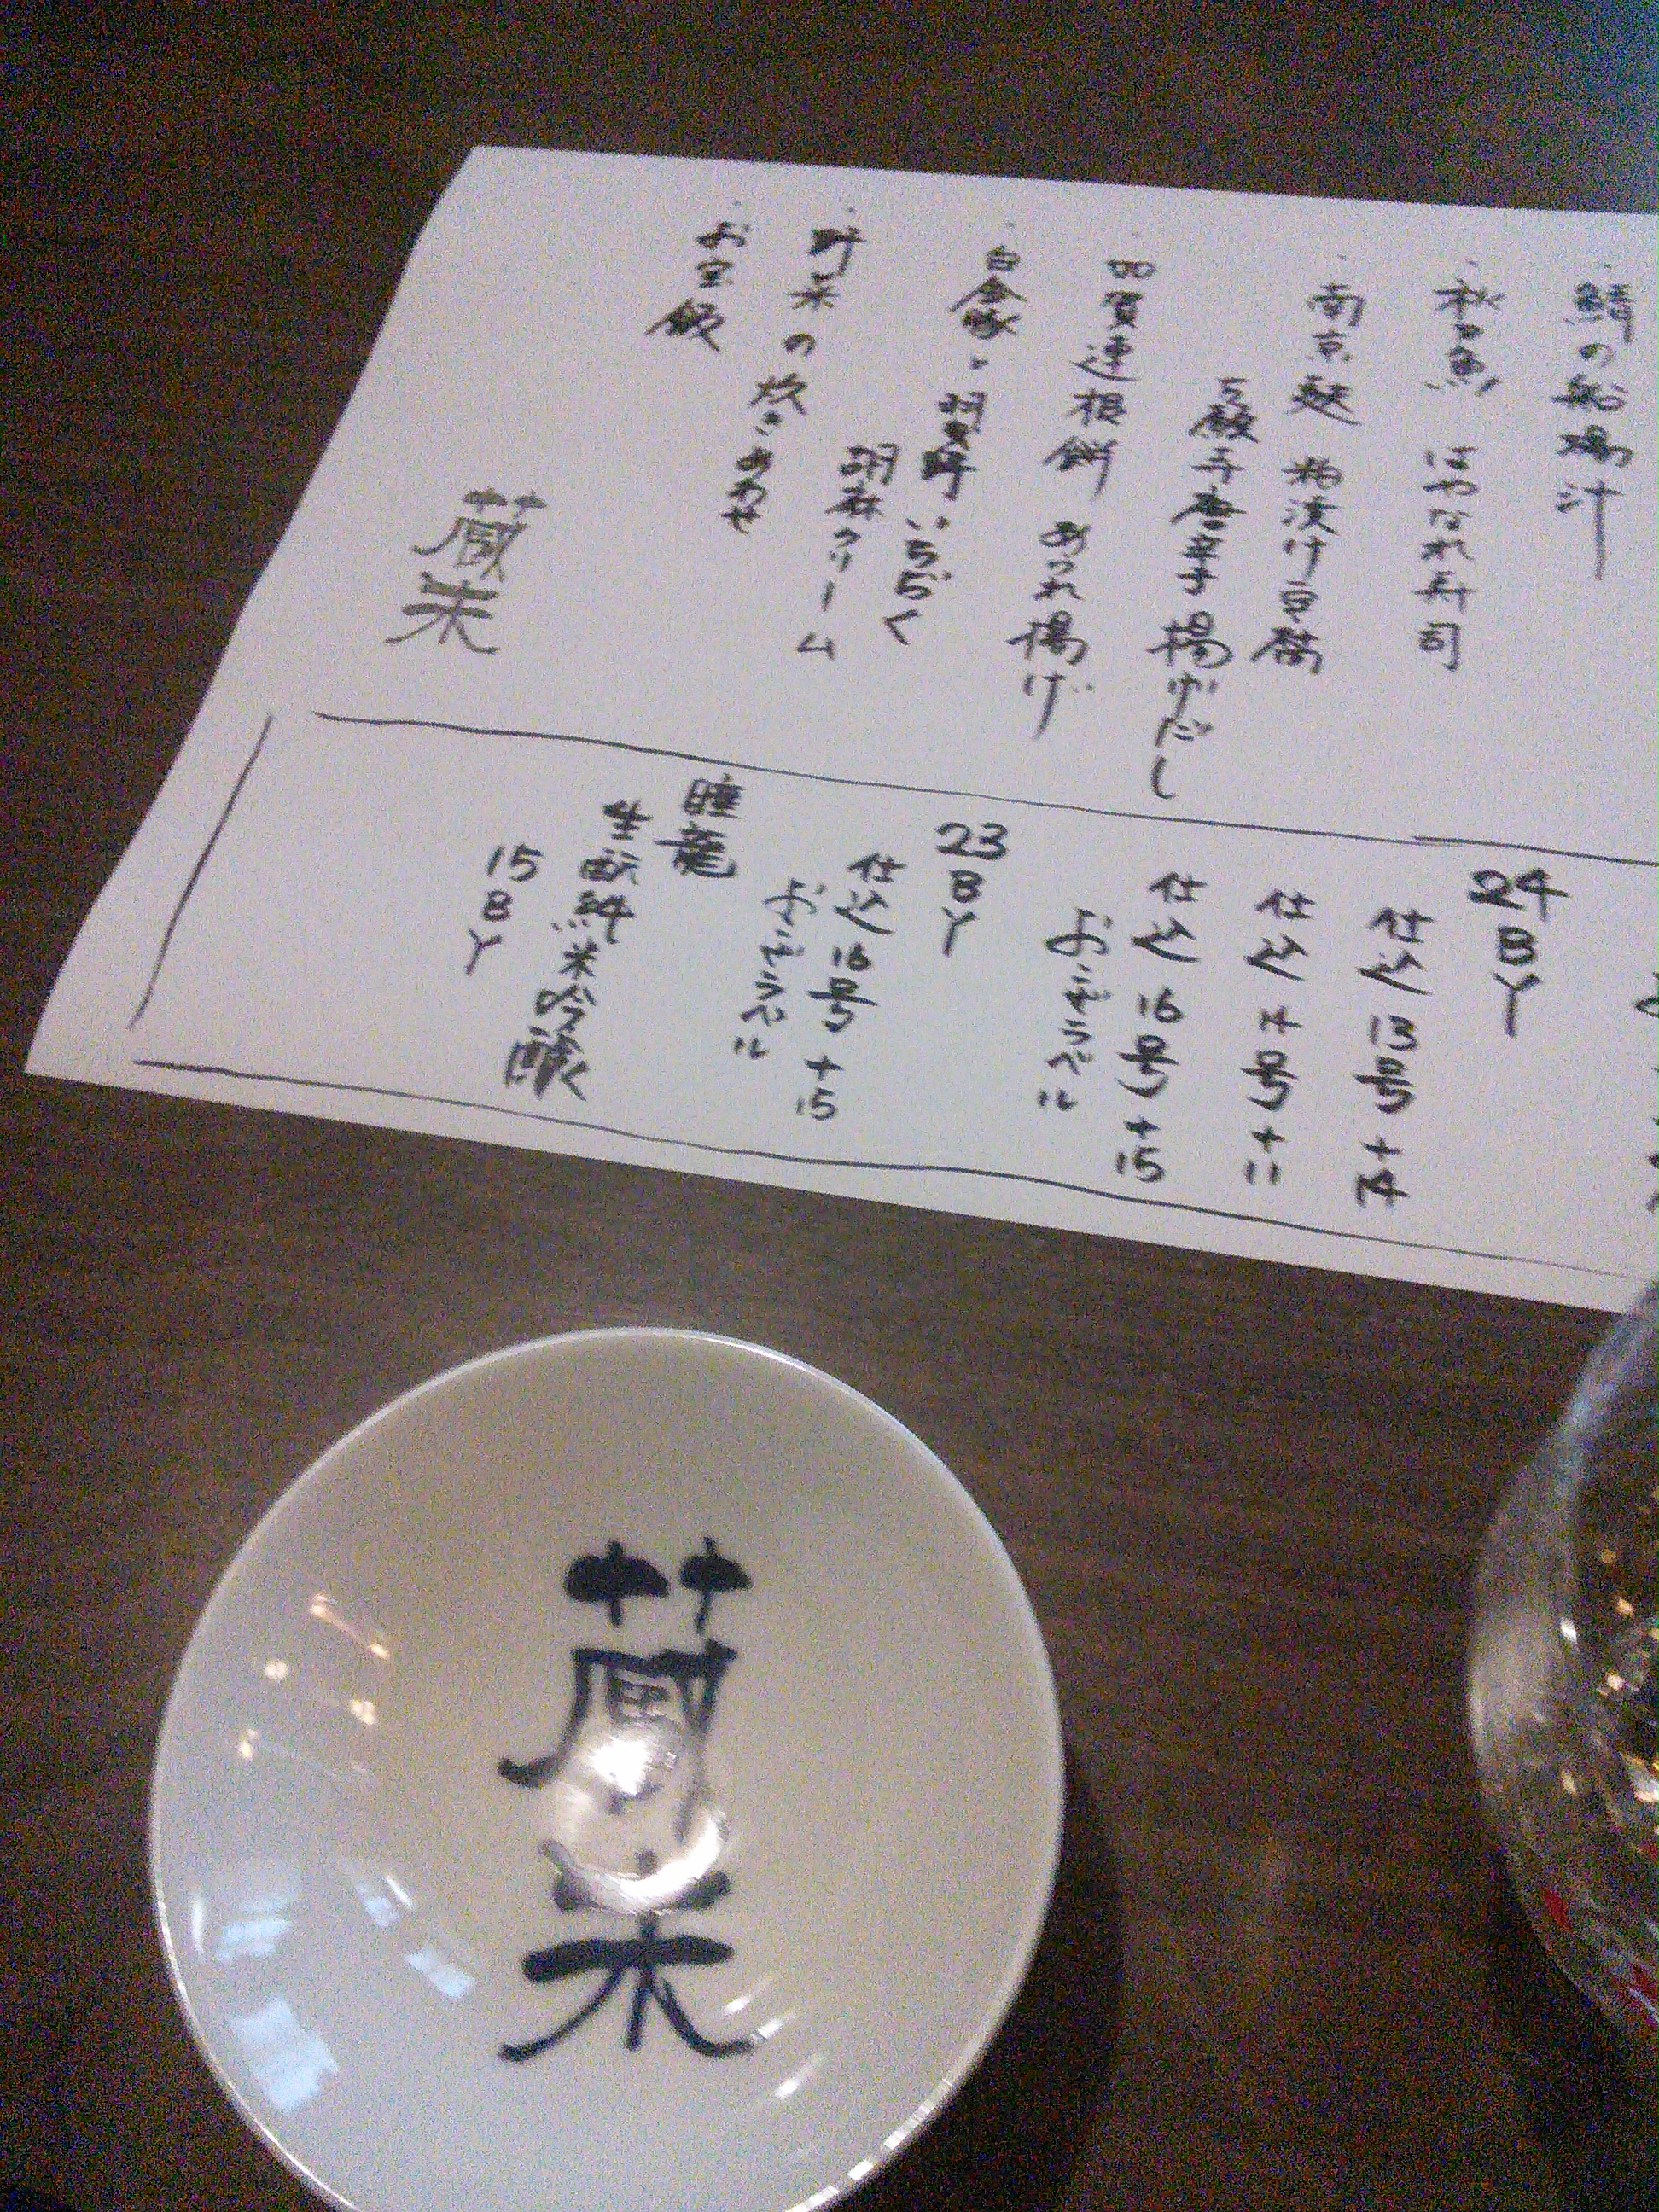 鯖の船場汁
秋刀魚 ほやなれ寿司
南京麩 粕漬け豆腐
万願寺唐辛子揚げだし
加賀連根餅 あられ揚げ
白金豚と羽曳野いちぢく
胡麻クリーム
野菜の炊きあわせ
お宝飯
蔵朱
24BY
仕込13号+14
仕込14号+11
仕込16号+15
おこぜラベル
23BY
仕込16号+15
おこぜラベル
睡龍
生酛純米吟醸
15BY
蔵朱